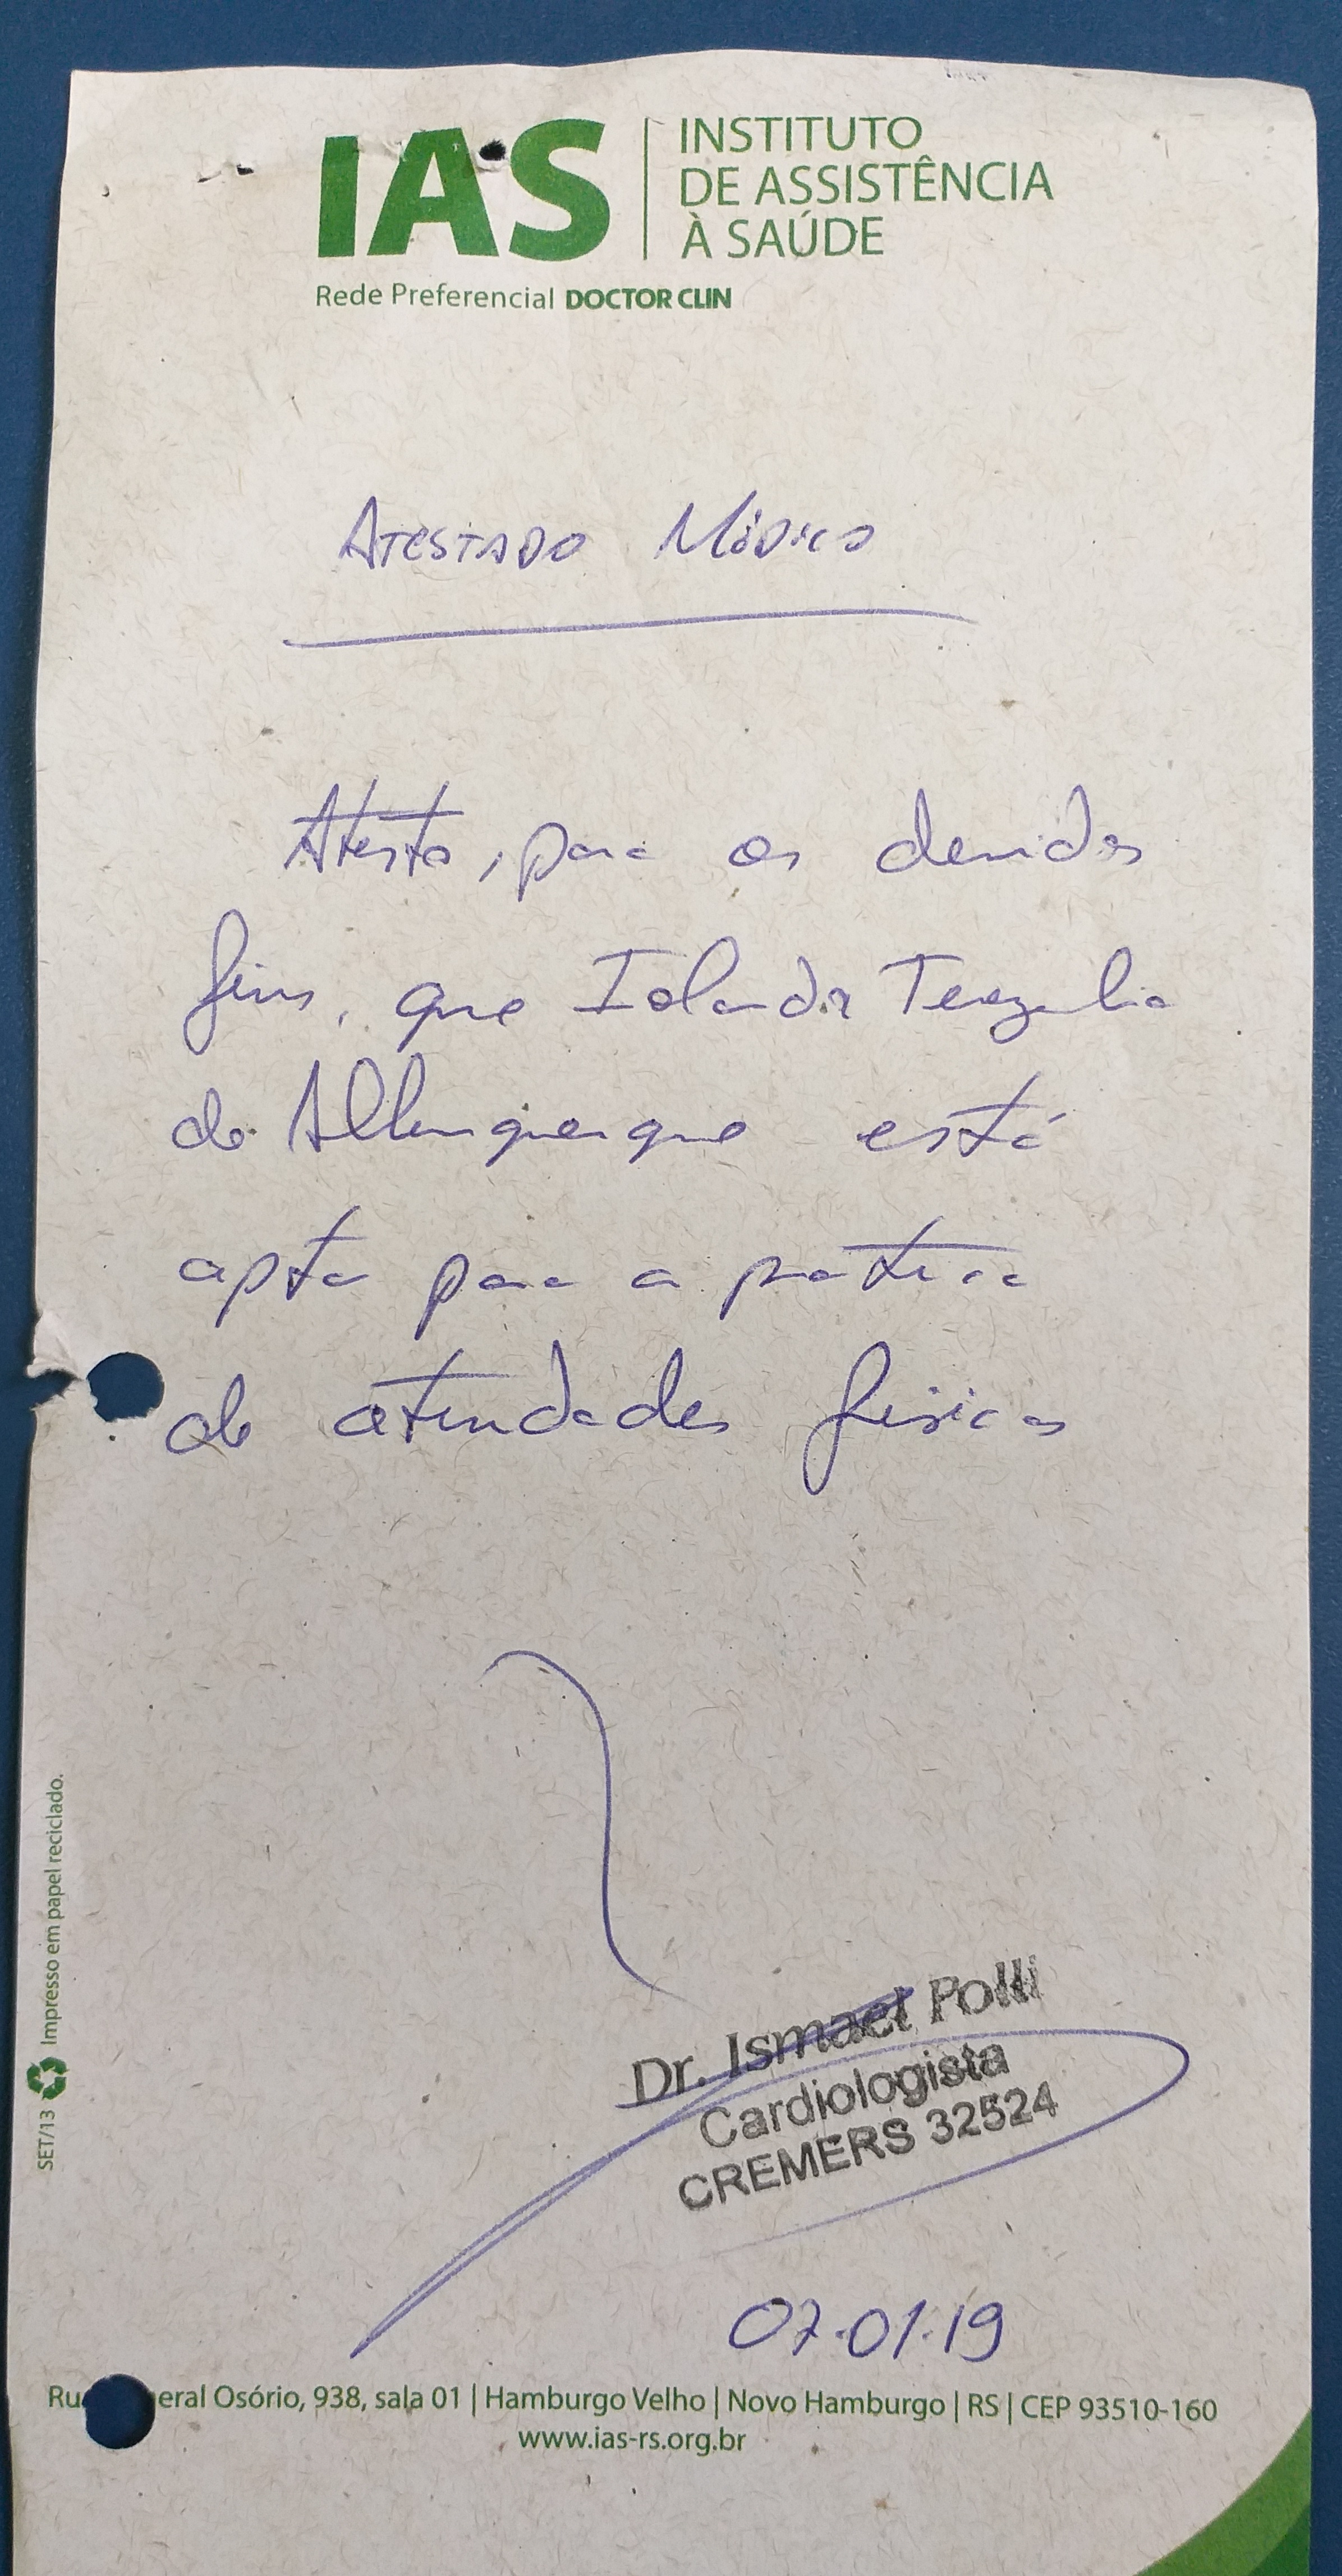 IAS
INSTITUTO
DE ASSISTÊNCIA
À SAÚDE
Rede Preferencial DOCTOR CLIN
ATESTADO MÉDICO
Atesto, para os devidos
fins, que Iolanda
de Albuquerque está
apta para a prática
de atividades físicas
Dr. Ismael Polli
Cardiologista
CREMERS 32524
07.01.19
SET/13 Impresso em papel reciclado.
Ru eral Osório, 938, sala 01 | Hamburgo Velho | Novo Hamburgo | RS | CEP 93510-160
www.ias-rs.org.br